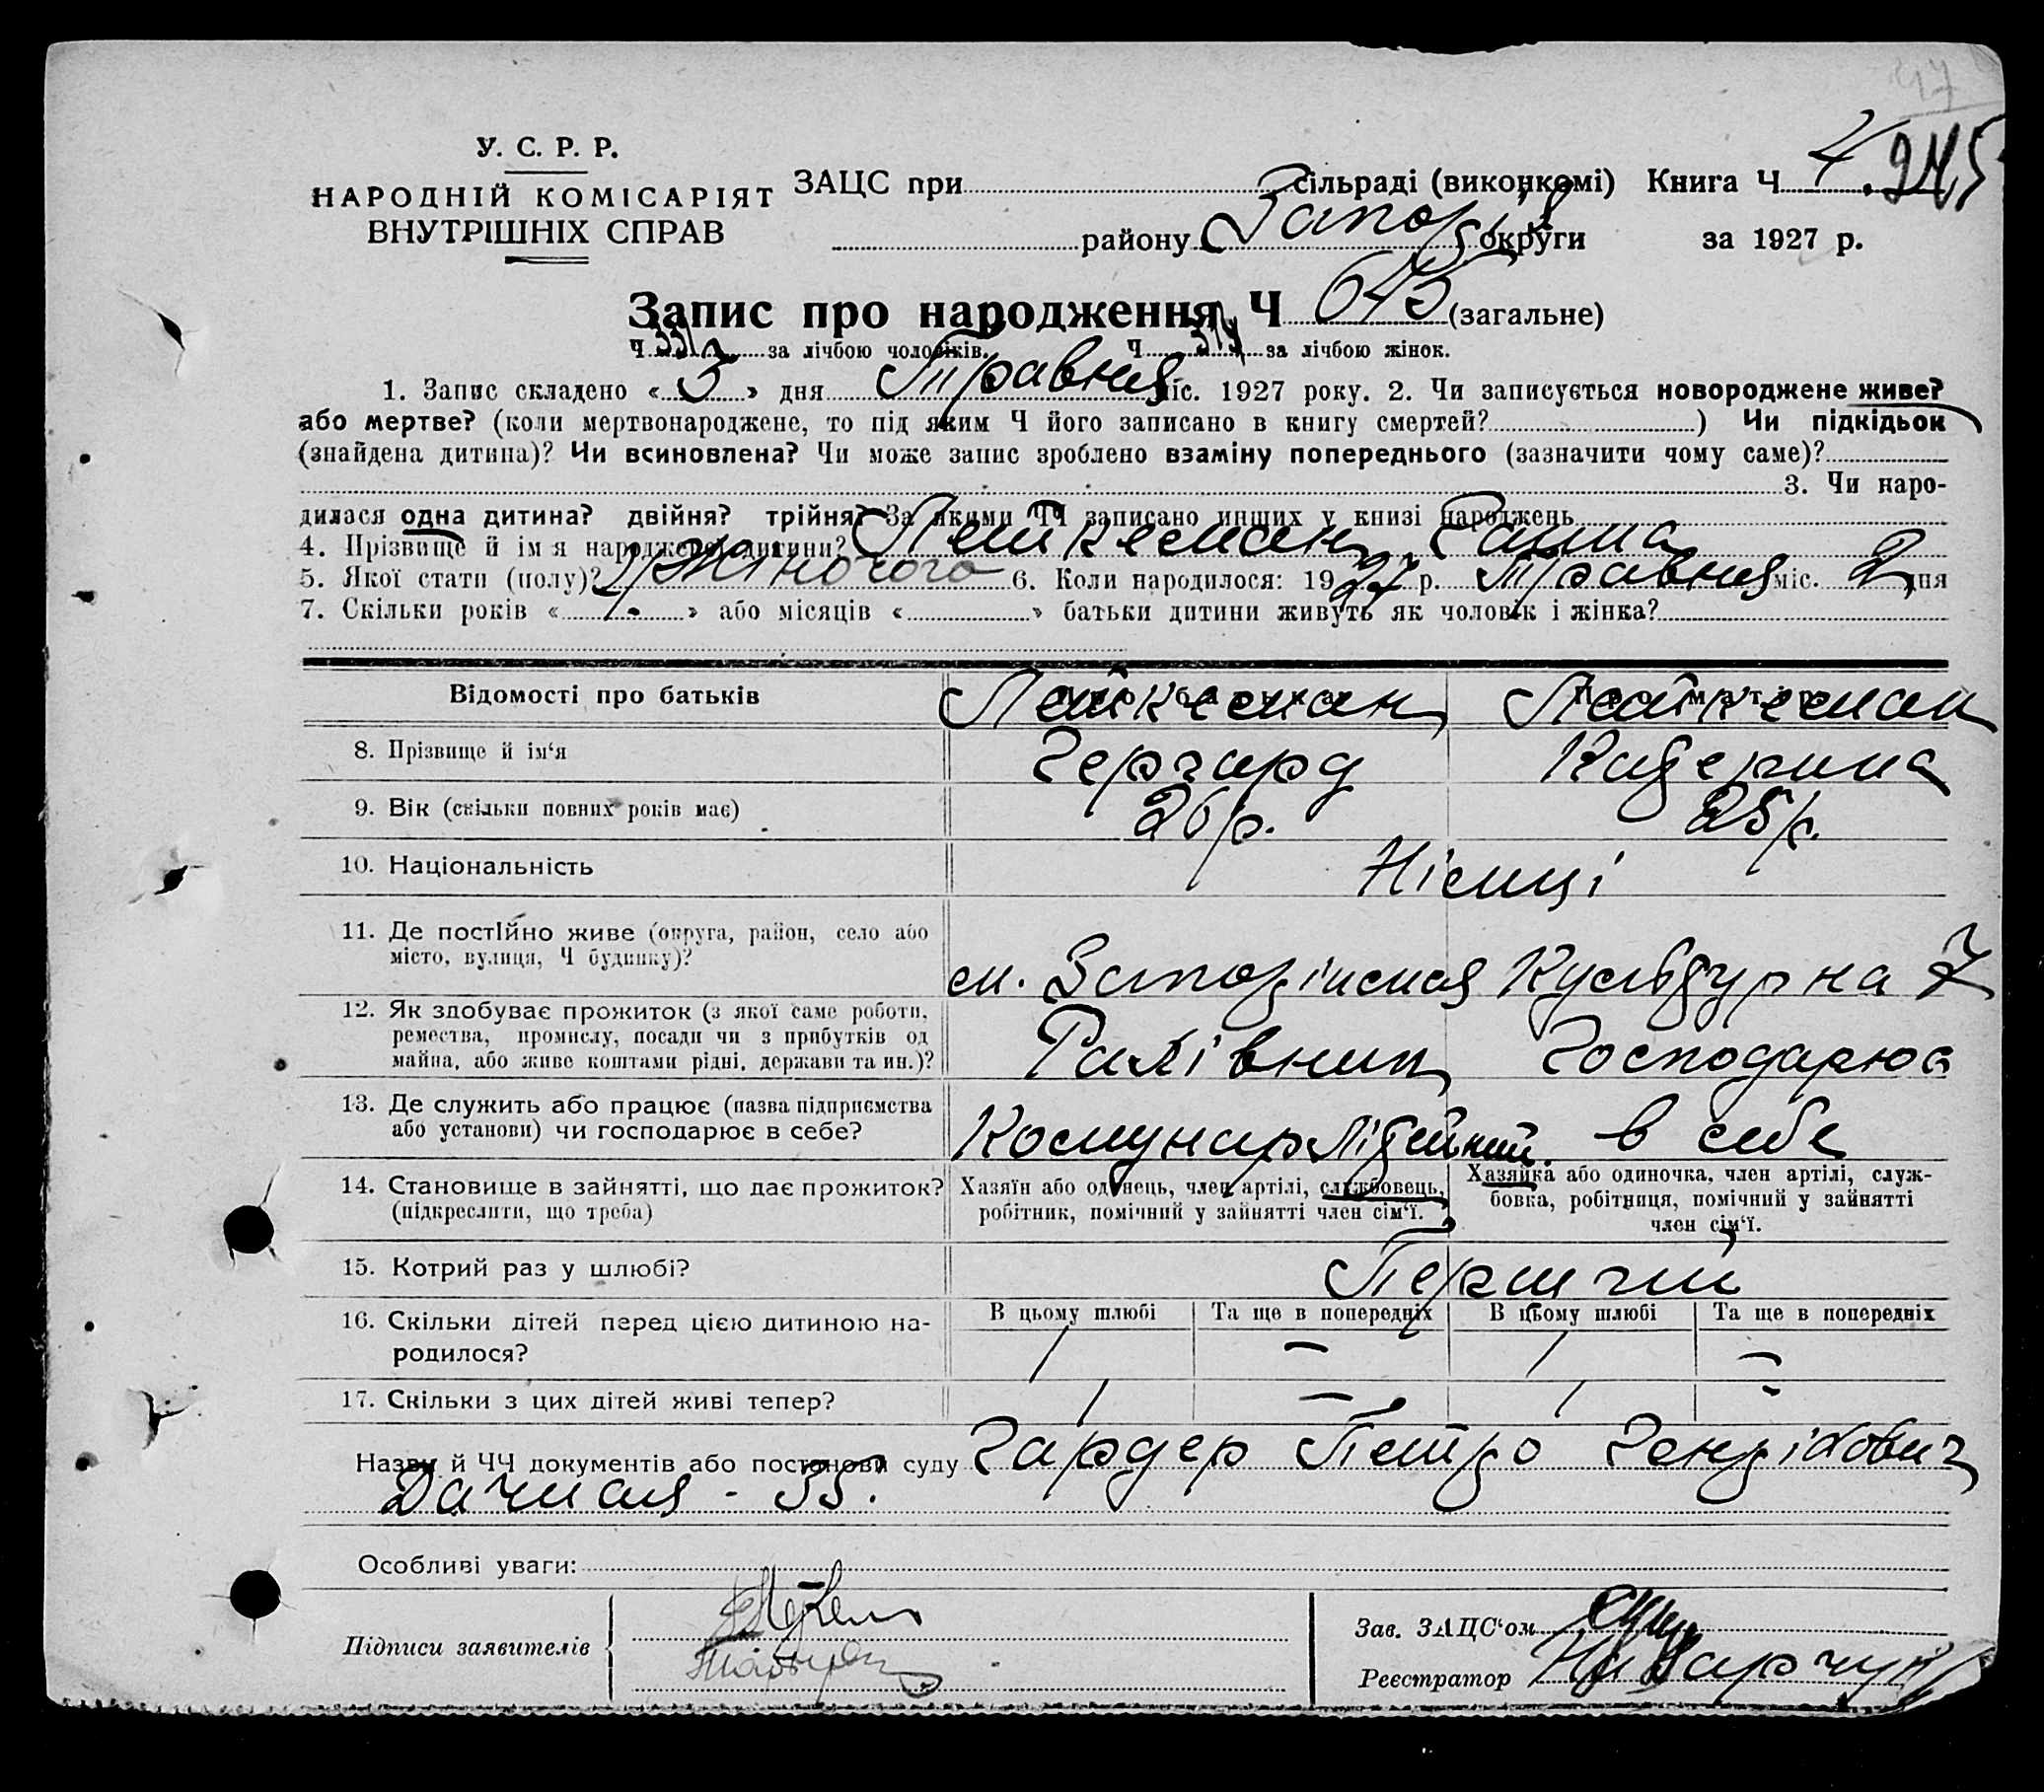 47
У. С. Р. Р.
НАРОДНІЙ КОМІСАРІЯТ
ВНУТРІШНІХ СПРАВ
ЗАЦС при сільраді (виконкомі) Книга Ч 4
245
району Запоріз округи за 1927 р.
Запис про народження Ч 645 (загальне)
Ч за лічбою чоловіків. Ч за лічбою жінок.
1. Запис складено « 3 » дня Травня міс. 1927 року. 2. Чи записується новороджене живе?
або мертве? (коли мертвонароджене, то під яким Ч його записано в книгу смертей? ) Чи підкідьок
(знайдена дитина)? Чи всиновлена? Чи може запис зроблено взаміну попереднього (зазначити чому саме)?
3. Чи наро-
дилася одна дитина? двійня? трійня? За якими ЧЧ записано инших у книзі народжень
4. Прізвище й ім'я народженої дитини? Петкеман Ганна
5. Якої стати (полу)? Жіночого 6. Коли народилося: 1927 р. Травня міс. 2 дня
7. Скільки років « » або місяців « » батьки дитини живуть як чоловік і жінка?
Відомості про батьків Про батька Про матір
Петкеман Петкеман
8. Прізвище й ім'я Гергард Катерина
9. Вік (скільки повних років має) 26 р. 25 р.
10. Національність Німці
11. Де постійно живе (округа, район, село або
місто, вулиця, Ч будинку)? м. Запоріжжя Культурна 7
12. Як здобуває прожиток (з якої саме роботи,
ремества, промислу, посади чи з прибутків од
майна, або живе коштами рідні, держави та ин.)? Рахівник Господарює
13. Де служить або працює (назва підприємства
або установи) чи господарює в себе? Комунар Літейний. в себе
14. Становище в зайнятті, що дає прожиток?
(підкреслити, що треба)
Хазяїн або одинець, член артілі, службовець,
робітник, помічний у зайнятті член сім'ї.
Хазяйка або одиночка, член артілі, служ-
бовка, робітниця, помічний у зайнятті
член сім'ї.
15. Котрий раз у шлюбі? Перший
В цьому шлюбі Та ще в попередніх В цьому шлюбі Та ще в попередніх
16. Скільки дітей перед цією дитиною на-
родилося? 1 — 1 —
17. Скільки з цих дітей живі тепер? 1 — 1 -
Назви й ЧЧ документів або постанови суду Гардер Петро Генріхович
Дачная - 35.
Особливі уваги:
Підписи заявителів
Зав. ЗАЦС'ом
Реєстратор